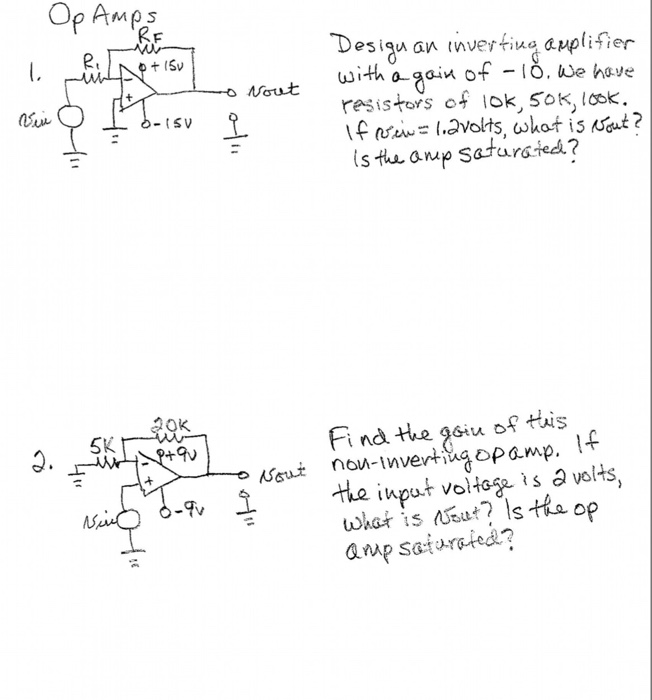 Op Amps
RF
R1
+15V
1.
Vout
Design an inverting amplifier
with a gain of -10. We have
resistors of 10K, 50K, 100K.
If Vin = 1.2volts, what is Vout?
Is the amp saturated?
Vin
-
+
-15V
20K
5K
+9V
2.
-
+
Vout
Vin
-9V
Find the gain of this
non-inverting op amp. If
the input voltage is 2 volts,
what is Vout? Is the op
amp saturated?